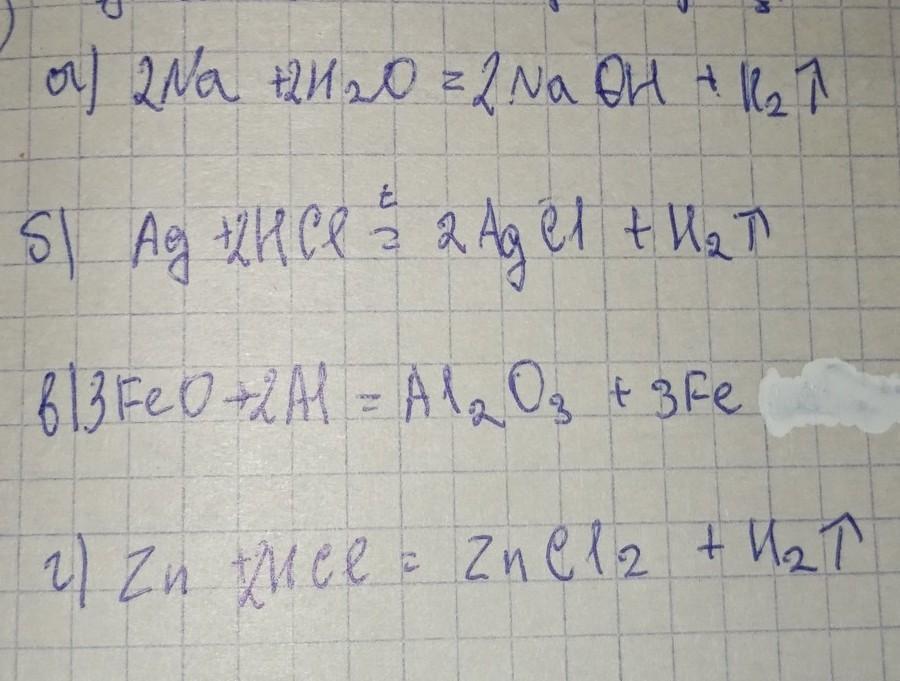 а) 2Na +2H₂O = 2NaOH + H₂↑
б) Ag +2HCl t= 2AgCl + H₂↑
в) 3FeO +2Al = Al₂O₃ + 3Fe
г) Zn +2HCl = ZnCl₂ + H₂↑